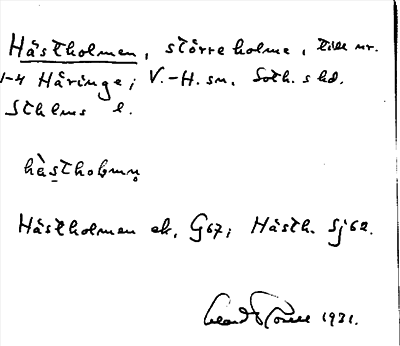 Hästholmen, större holme, till nr.
1-4 Häringe; V.-H. sn. Soth. shd.
Sthlms l.
hàstholmn̥
Hästholmen ek. G67; Hästh. Sj62.
1931.